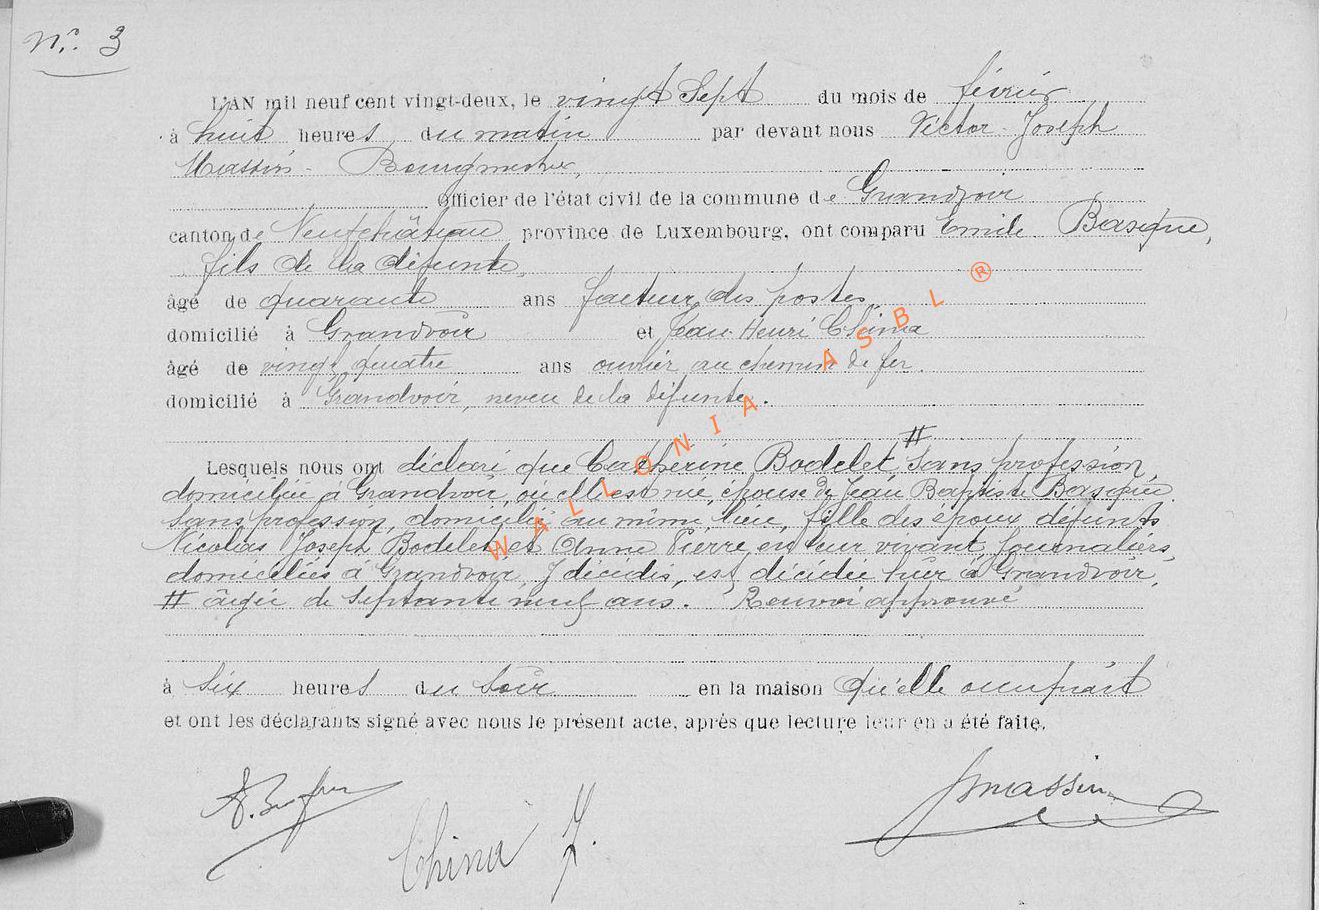 N.° 3
L'AN mil neuf cent vingt-deux, le vingt Sept du mois de février
à huit heures du matin par devant nous Victor-Joseph
Massin - Bourgmestre,
Officier de l'état civil de la commune de Grandvoir
canton de Neufchâteau province de Luxembourg, ont comparu Emile Basique,
fils de la défunte,
âgé de quarante ans facteur des postes
domicilié à Grandvoir et Jean-Henri China
âgé de vingt quatre ans ouvrier au chemin de fer.
domicilié à Grandvoir, neveu de la défunte.
Lesquels nous ont déclaré que Catherine Bodelet # Sans profession,
domiciliée à Grandvoir, où elle est née, épouse de Jean Baptiste Basique,
sans profession, domicilié au même lieu, fille des époux défunts
Nicolas Joseph Bodelet et Anne Pierre, en leur vivant, journaliers,
domiciliés à Grandvoir, y décédés, est décédée hier à Grandvoir,
# âgée de septante neuf ans. Renvoi approuvé
à six heures du soir en la maison qu'elle occupait
et ont les déclarants signé avec nous le présent acte, après que lecture leur en a été faite.
China J.
Jmassin
WALLONIA ASBL ®